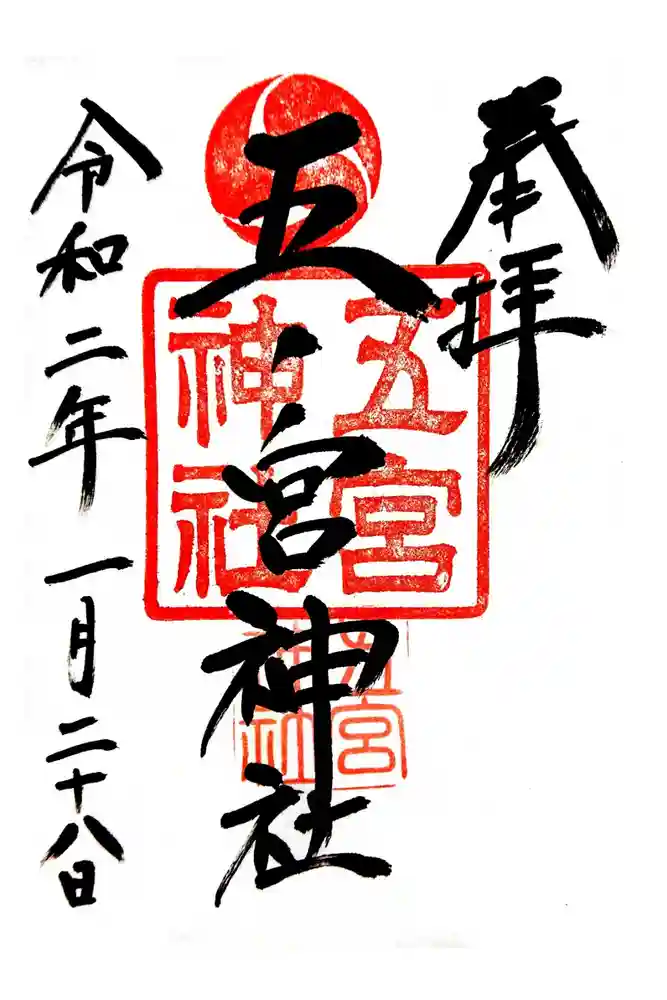 奉拝
五ノ宮神社
令和二年一月二十八日
五宮
神社
五宮
神社